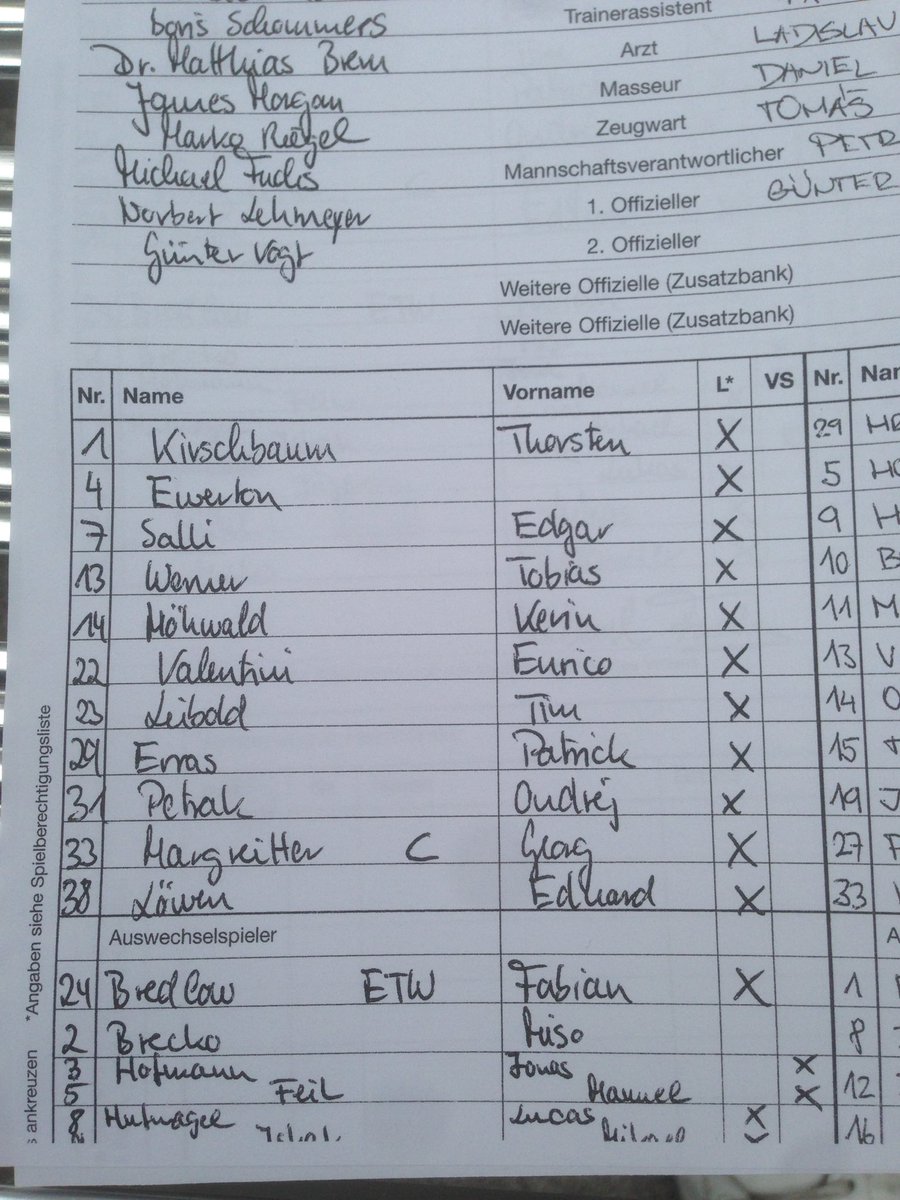 Boris Schommers Trainerassistent
Dr. Matthias Brem Arzt LADISLAV
James Morgan Masseur DANIEL
Marko Riegel Zeugwart TOMÁŠ
Michael Fuchs Mannschaftsverantwortlicher PETR
Norbert Lehmeyer 1. Offizieller GÜNTER
Günter Vogt 2. Offizieller
Weitere Offizielle (Zusatzbank)
Weitere Offizielle (Zusatzbank)
Nr. Name Vorname L* VS Nr. Nam
1 Kirschbaum Thorsten X 29
4 Ewerton X 5
7 Salli Edgar X 9 H
13 Werner Tobias X 10 B
14 Möhwald Kevin X 11 M
22 Valentini Enrico X 13 V
23 Leibold Tim X 14 O
29 Erras Patrick X 15
31 Petrak Ondrej X 19 J
33 Margreitter C Georg X 27
38 Löwen Eduard X 33
Auswechselspieler A
24 Bredlow ETW Fabian X 1
2 Brecko Miso 8
3 Hofmann Jonas X
5 Feil Manuel X 12
8 Hufnagel Lucas X 16
*Angaben siehe Spielberechtigungsliste
s ankreuzen